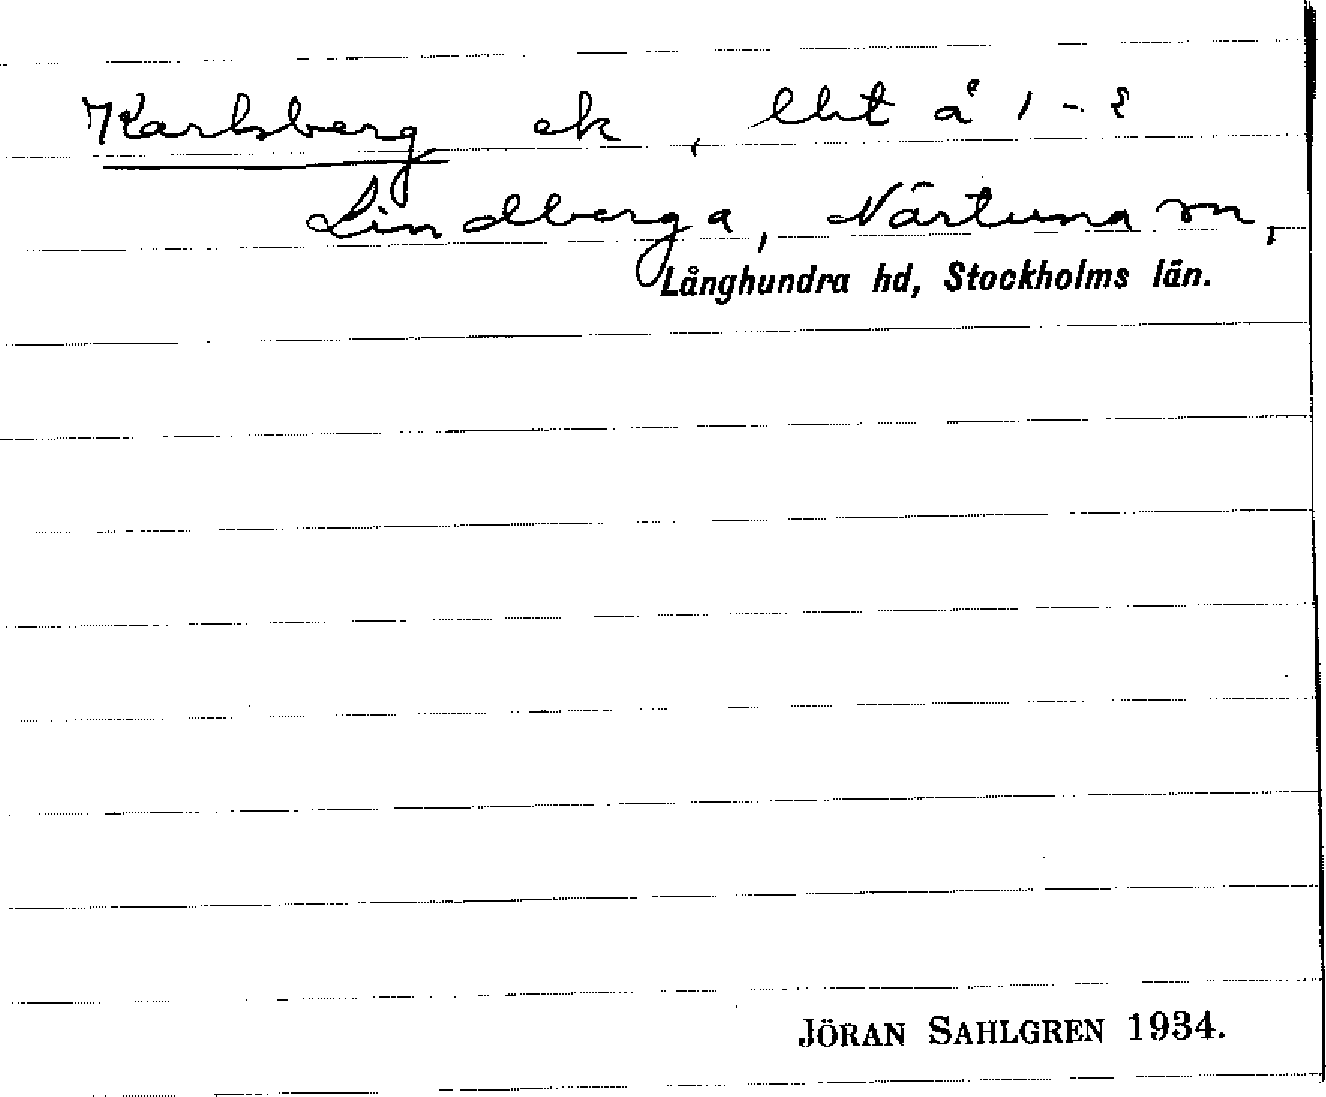 Karlsberg ek, lht å 1-2
Lindberga, Närtuna sn,
Långhundra hd, Stockholms län.
JÖRAN SAHLGREN 1934.